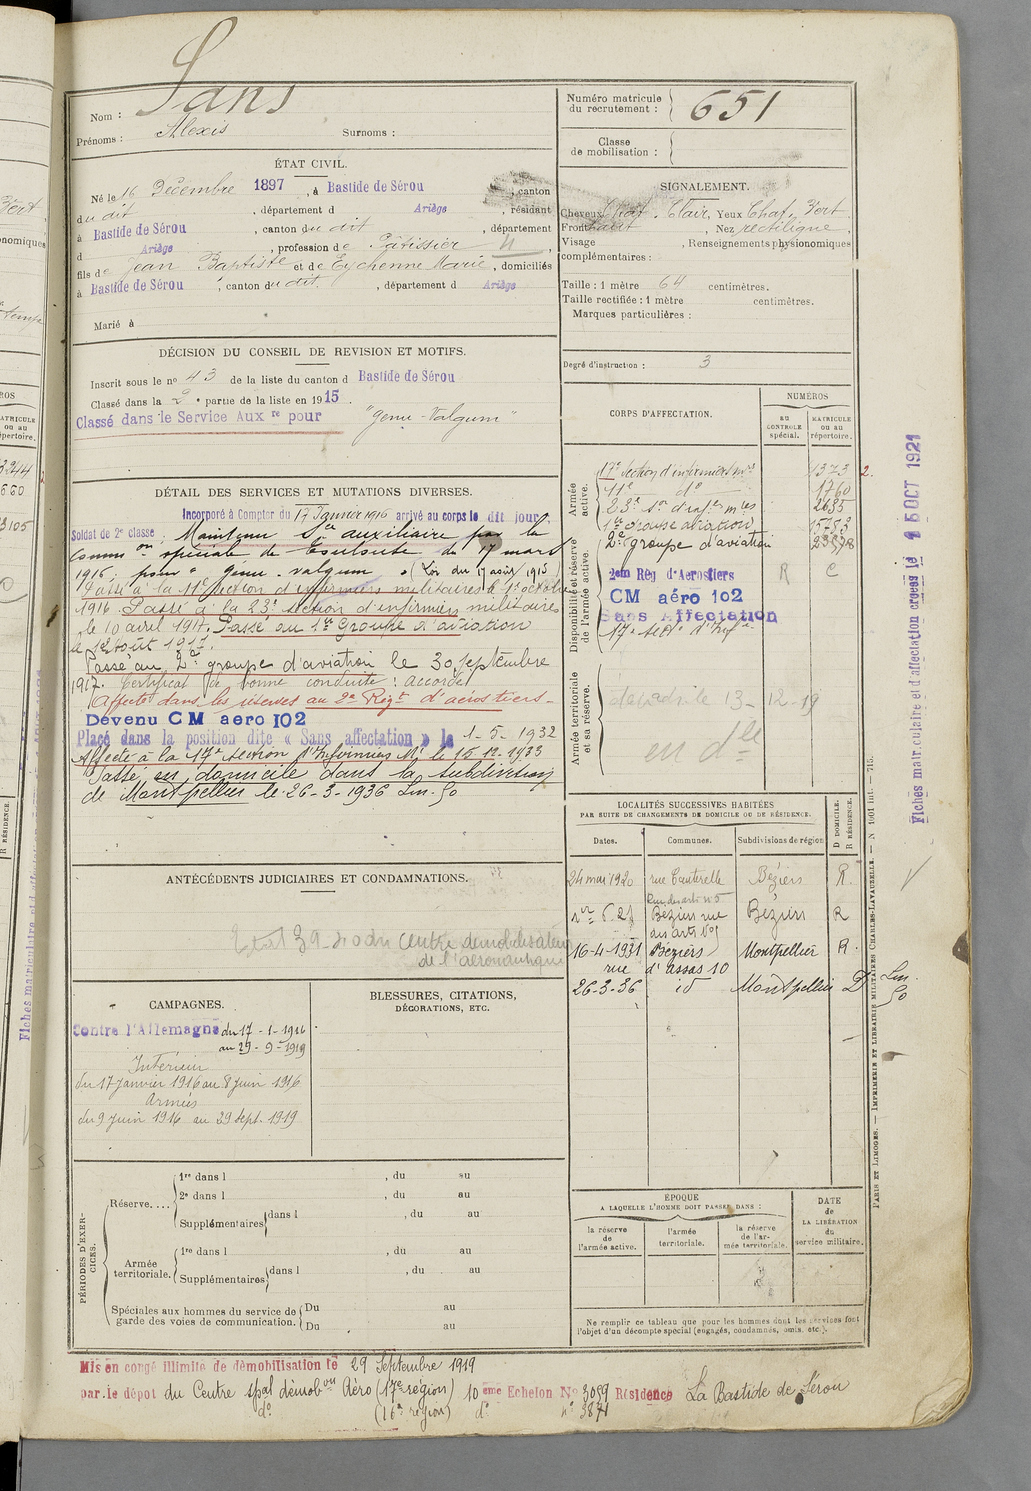 Nom : Sans
Prénoms : Alexis Surnoms :
Numéro matricule du recrutement : 651
Classe de mobilisation :
ÉTAT CIVIL.
Né le 16 Décembre 1897, à Bastide de Sérou, canton
du dit, département d Ariège, résidant
à Bastide de Sérou, canton du dit, département
d Ariège, profession de Pâtissier
fils de Jean Baptiste et de Eychenne Marie, domiciliés
à Bastide de Sérou, canton du dit, département d Ariège
Marié à
SIGNALEMENT.
Cheveux Chat. Clair, Yeux Chat. Vert
Front haut, Nez rectiligne,
Visage , Renseignements physionomiques
complémentaires :
Taille : 1 mètre 64 centimètres.
Taille rectifiée : 1 mètre centimètres.
Marques particulières :
Degré d'instruction : 3
DÉCISION DU CONSEIL DE REVISION ET MOTIFS.
Inscrit sous le no 43 de la liste du canton d Bastide de Sérou
Classé dans la 2e partie de la liste en 1915.
Classé dans le Service Aux re pour "genu-valgum"
DÉTAIL DES SERVICES ET MUTATIONS DIVERSES.
Incorporé à Compter du 17 Janvier 1916 arrivé au corps le dit jour,
Soldat de 2e classe. Maintenu Sce auxiliaire par la
Common spéciale de Toulouse du 17 mars
1916. pour "genu-valgum" (Loi du 17 août 1915)
Passé à la 11e Section d'infirmiers militaires le 1er octobre
1916. Passé à la 23e section d'infirmiers militaires
le 10 avril 1917. Passé au 1er Groupe d'aviation
le 1er août 1917.
Passé au 2e groupe d'aviation le 30 septembre
1917. Certificat de bonne conduite : accordé
Affecté dans les réserves au 2e Régt d'aérostiers
Devenu CM aéro 102
Placé dans la position dite « Sans affectation » le 1-5-1932
Affecté à la 17e Section d'Infirmiers Mres le 15-12-1933
Passé en domicile dans la subdivision
de Montpellier le 26-3-1936 Lm-So
CORPS D'AFFECTATION.
NUMÉROS
AU CONTROLE spécial.
MATRICULE ou au répertoire.
Armée active.
17e Section d'infirmiers mres 1373 2.
11e do 1760
23e son d'infers mres 2635
1er groupe aviation
2e groupe d'aviation
Disponibilité et réserve de l'armée active.
2em Rég d'Aérostiers R C
CM aéro 102
Sans Affectation
17e Son d'Infre
Armée territoriale et sa réserve.
13-12-19
LOCALITÉS SUCCESSIVES HABITÉES
PAR SUITE DE CHANGEMENTS DE DOMICILE OU DE RÉSIDENCE.
Dates. Communes. Subdivisions de région D DOMICILE. R RÉSIDENCE.
24 mai 1920 rue Canterelle Béziers R.
Rue des arts no 5
Béziers rue Béziers R
des arts no 5
16-4-1931 Béziers Montpellier R.
rue d'assas 10
26-3-36 id Montpellier D Lm-So
ANTÉCÉDENTS JUDICIAIRES ET CONDAMNATIONS.
Centre démobilisateur
de l'aéronautique
CAMPAGNES.
Contre l'Allemagne du 17-1-1916
au 29-9-1919
Intérieur
du 17 janvier 1916 au 8 juin 1916
Armées
du 9 juin 1916 au 29 sept. 1919
BLESSURES, CITATIONS, DÉCORATIONS, ETC.
PÉRIODES D'EXERCICES.
Réserve.... 1re dans l , du au
2e dans l , du au
Supplémentaires dans l , du au
Armée territoriale. 1re dans l , du au
Supplémentaires dans l , du au
Spéciales aux hommes du service de garde des voies de communication. Du au
Du au
ÉPOQUE
A LAQUELLE L'HOMME DOIT PASSER DANS :
la réserve de l'armée active.
l'armée territoriale.
la réserve de l'armée territoriale.
DATE de LA LIBÉRATION du service militaire.
Ne remplir ce tableau que pour les hommes dont les services font
l'objet d'un décompte spécial (engagés, condamnés, omis, etc.).
Mis en congé illimité de démobilisation le 29 Septembre 1919
par le dépôt du Centre spal démobon Aéro (17e région) 10 eme Echelon No 3059 Résidence La Bastide de Sérou
do (16e région) do no 3871
PARIS ET LIMOGES. — IMPRIMERIE ET LIBRAIRIE MILITAIRES CHARLES-LAVAUZELLE. — N 1001 Int. — 715.
Fiches matriculaire et d'affectation créées le 15 OCT 1921